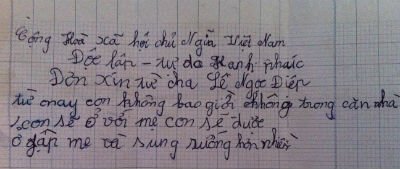 Cộng Hoà xã hội chủ Ngĩa Việt Nam
Độc lâp - tự do Hạnh phúc
Đơn xin từ cha Lê Ngọc Điệp
từ nay con không bao giờ không trong căn nhà
con sẽ ở với mẹ con sẽ được
ở gần mẹ và sung sướng hơn nhiều